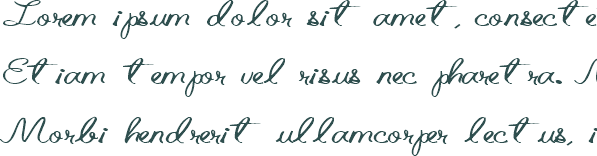 Lorem ipsum dolor sit amet, consecte
Etiam tempor vel risus nec pharetra. N
Morbi hendrerit ullamcorper lectus, i